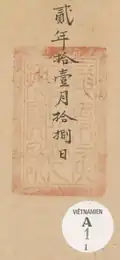 貳年拾壹月拾捌日
VIÊTNAMIEN
A
1
1